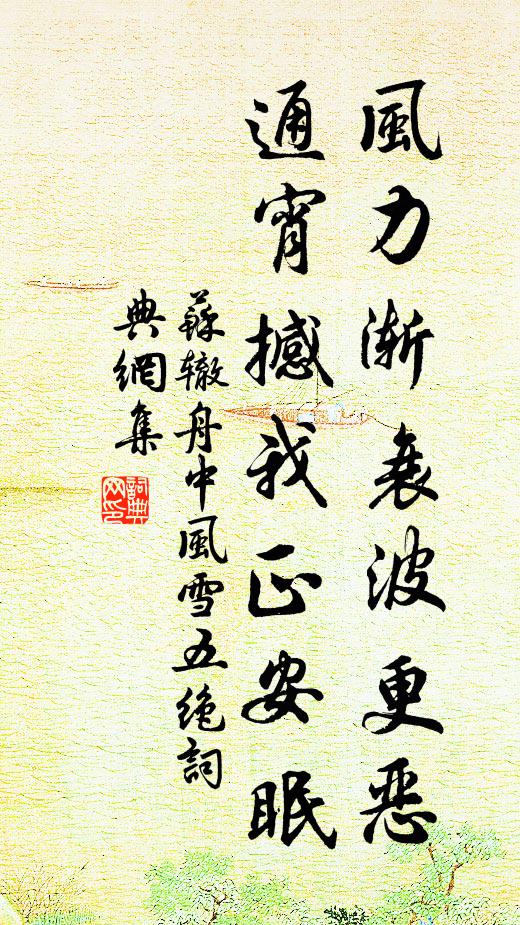 風力渐衰波更恶
通宵撼我正安眠
蘇辙舟中風雪五绝詞
典網集
詞典网印